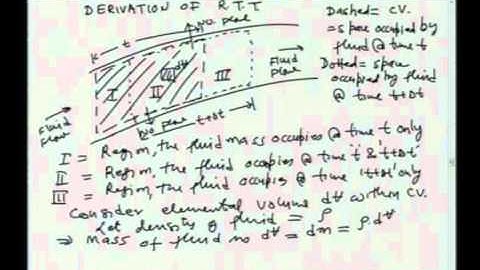 DERIVATION OF R.T.T
Dashed = CV.
= space occupied by
fluid @ time t
Dotted = space
occupied by fluid
@ time t+Dt
t
I
II
III
dV
Fluid
flow
t+Dt
Fluid
flow
I = Region, the fluid mass occupies @ time t only
II = Region, the fluid occupies @ time 't' & 't+Dt'
III = Region, the fluid occupies @ time 't+Dt' only
Consider elemental volume dV within CV.
Let density of fluid = ρ
⇒ mass of fluid in dV = dm = ρ.dV